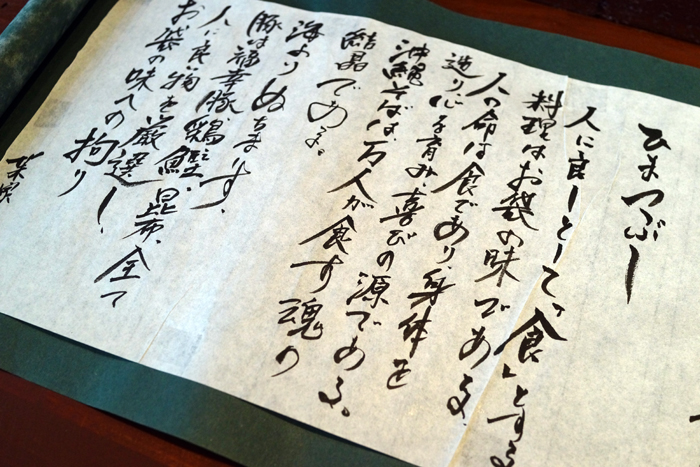 ひまつぶし
人に良しとして「食」とする
料理はお袋の味である
人の命は食であり、身体を
造り心を育み、喜びの源である、
沖縄そばは、万人が食す魂の
結晶である。
海より ぬちまーす、
豚は福幸豚、鶏、鰹、昆布、全て
人に良い物を厳選し、
お袋の味への拘り